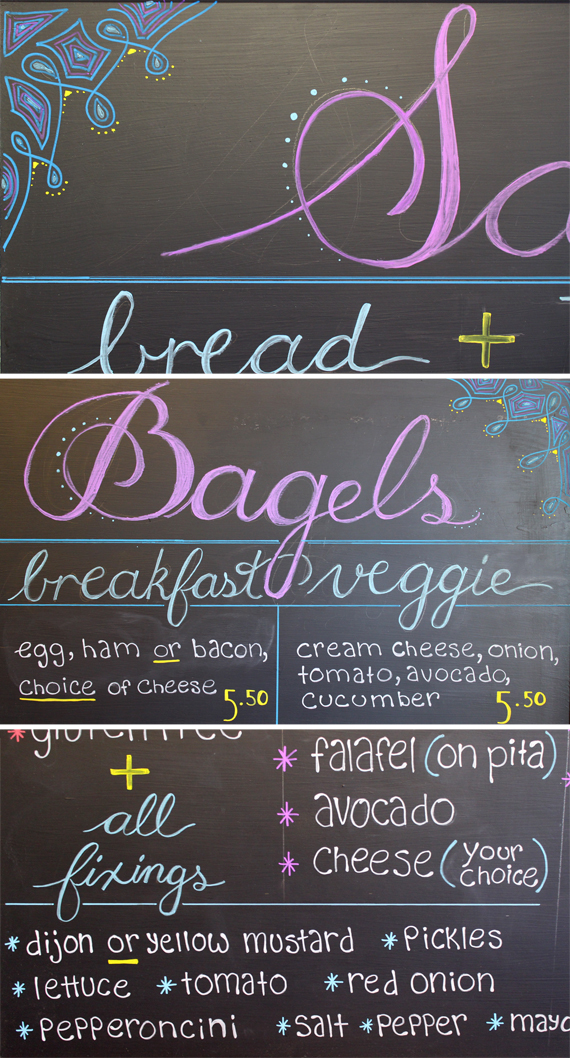 Sa
bread +
Bagels
breakfast veggie
egg, ham or bacon,
choice of cheese 5.50
cream cheese, onion,
tomato, avocado,
cucumber 5.50
*gluten free
+
all
fixings
* falafel (on pita)
* avocado
* cheese (your choice)
* dijon or yellow mustard * pickles
* lettuce * tomato * red onion
* pepperoncini * salt * pepper * mayo